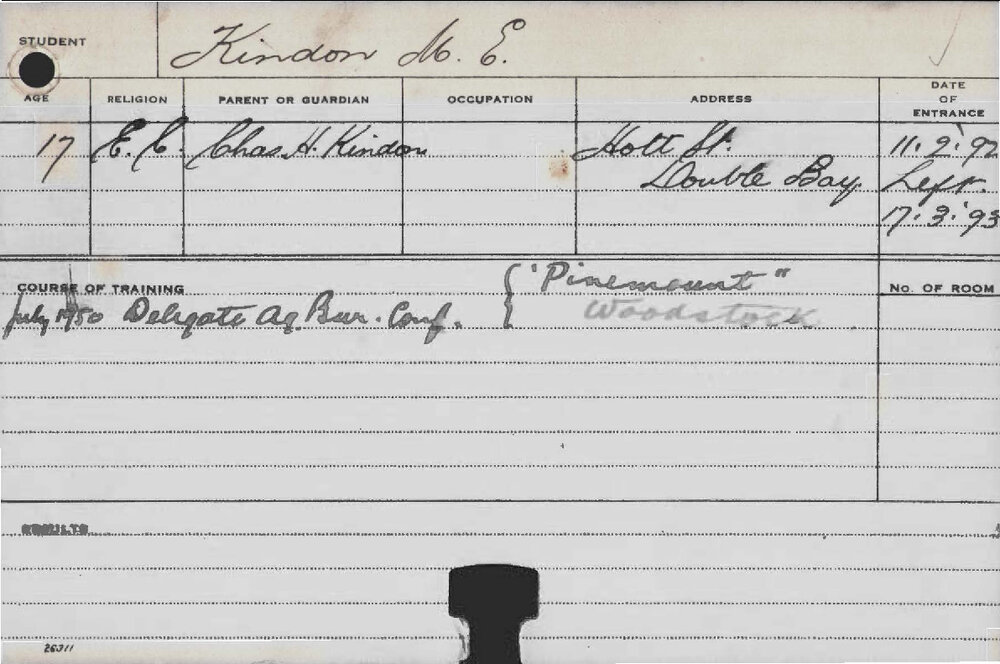 STUDENT Kindon M. E.
AGE RELIGION PARENT OR GUARDIAN OCCUPATION ADDRESS DATE OF ENTRANCE
17 E. C. Chas. H. Kindon Holt St. 11.2.'92
Double Bay. Left.
17.3.'93
COURSE OF TRAINING "Pinemount" No. OF ROOM
July 1950 Delegate Ag. Bur. Conf. Woodstock
RESULTS
26311